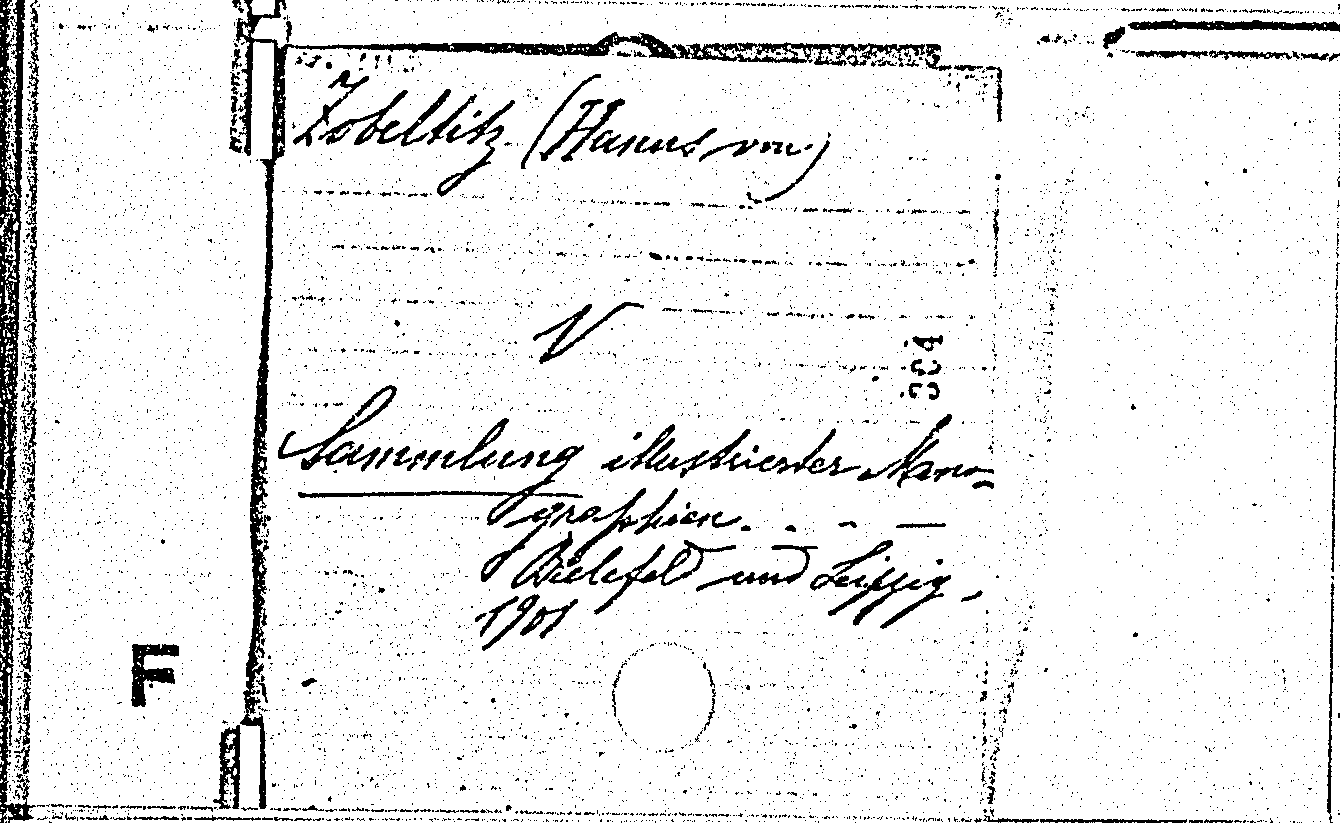 Zobeltitz (Hanns von)
V
304
Sammlung illustrierter Mono-
graphien. . . - —
Bielefeld und Leipzig,
1901
F